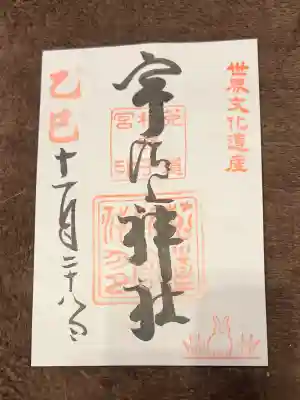 世界文化遺産
宇治上神社
乙巳十一月二十八日